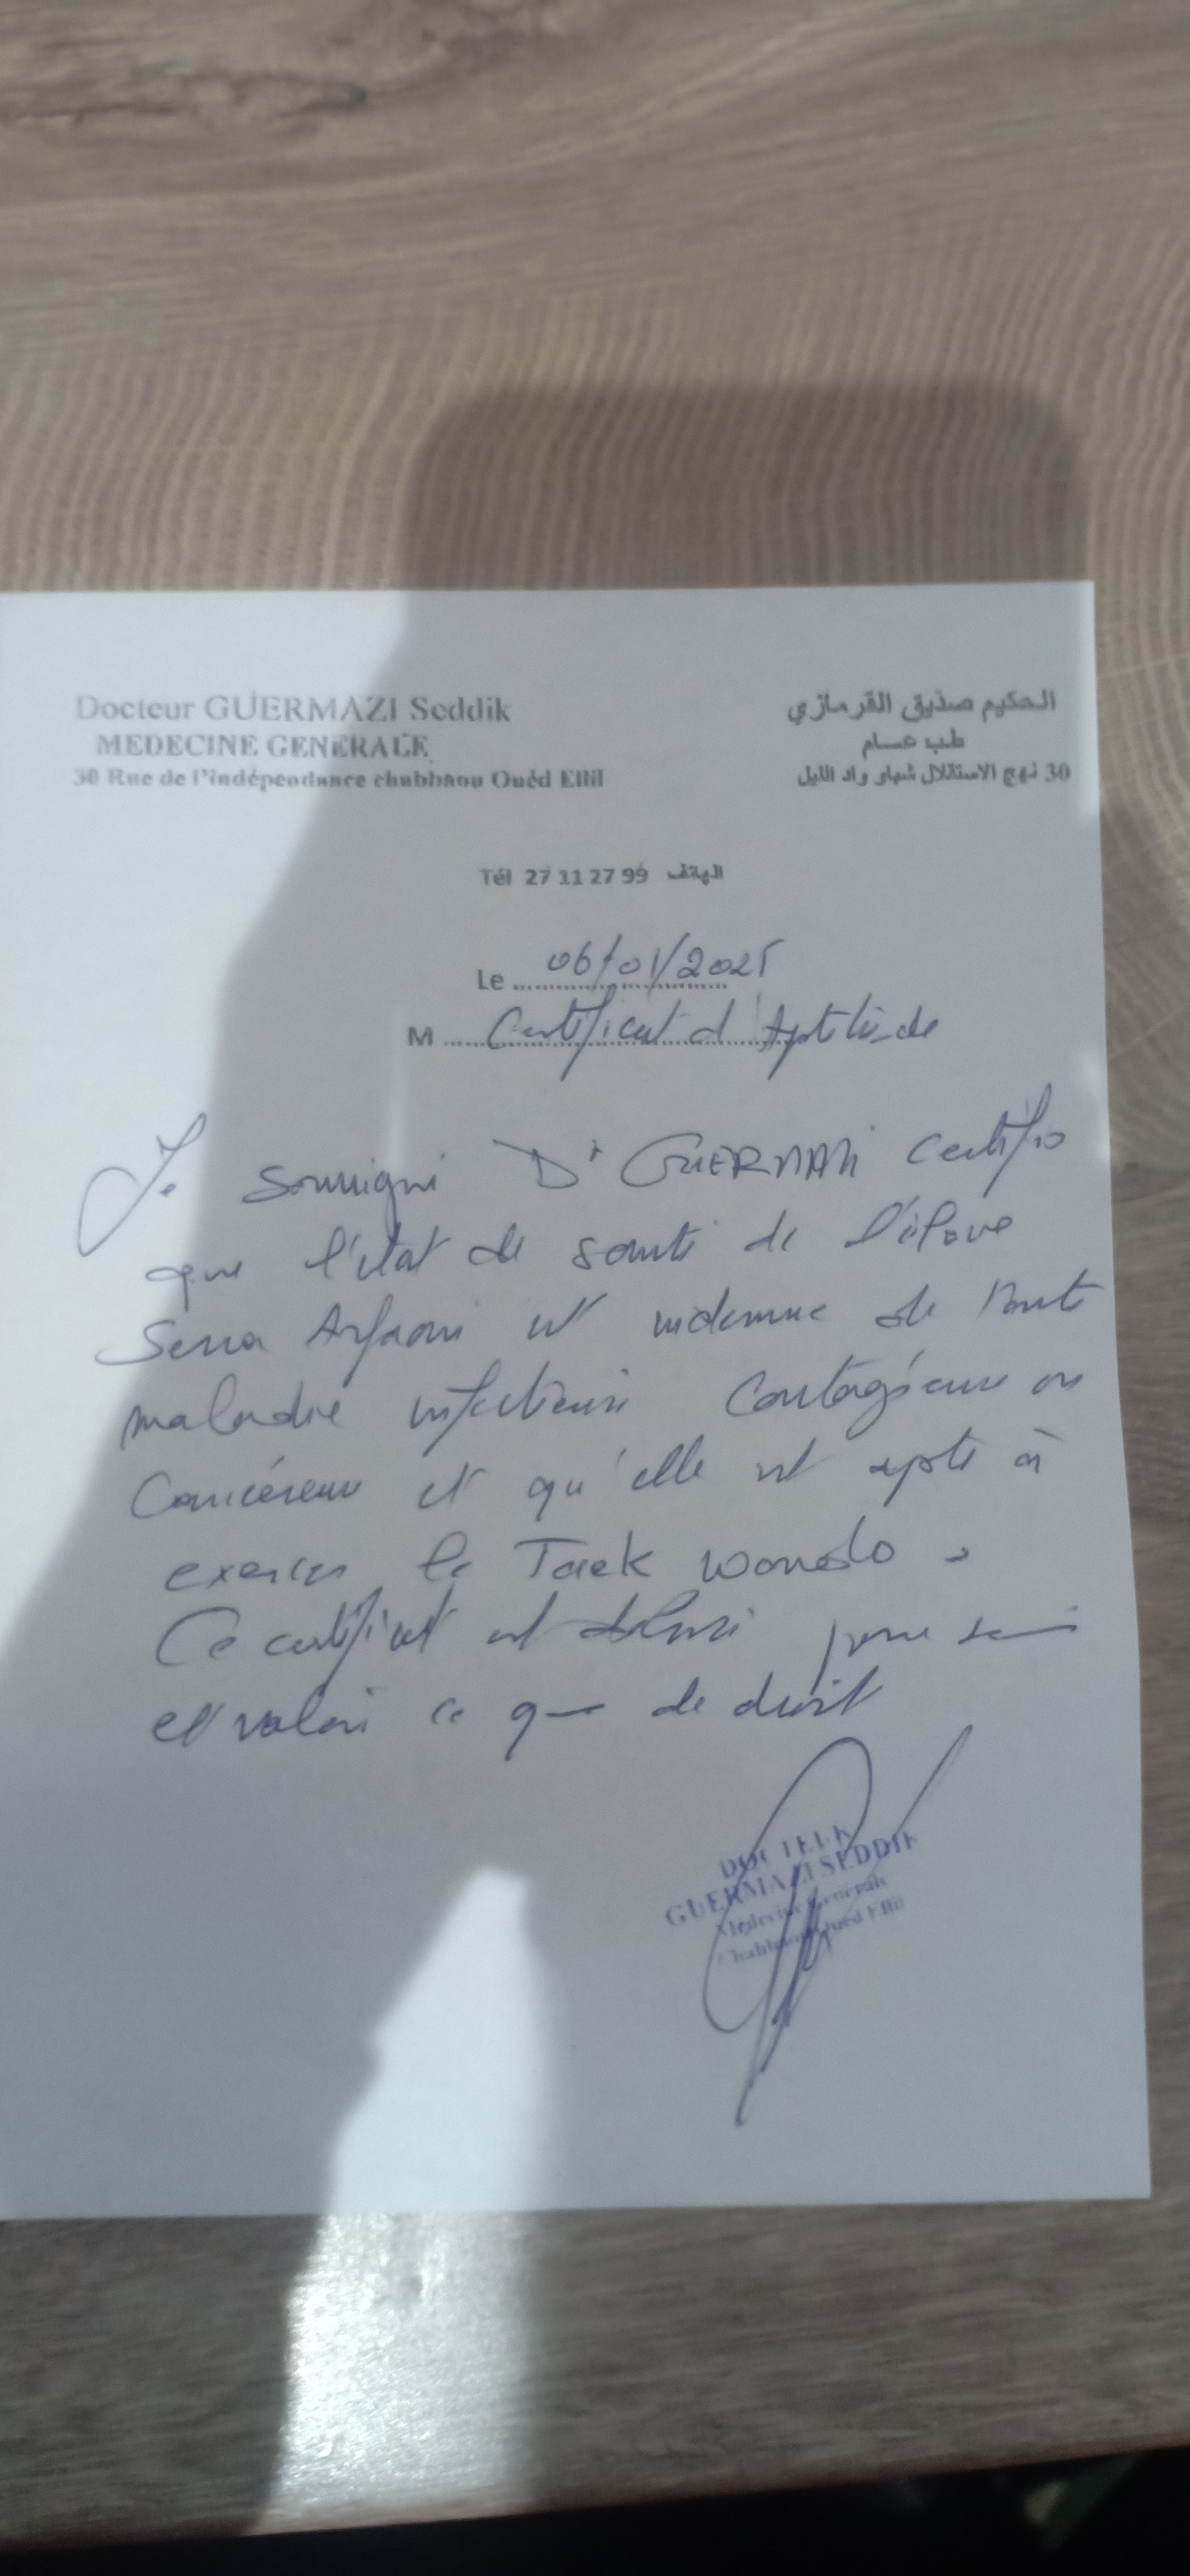 Docteur GUERMAZI Seddik
MEDECINE GENERALE
30 Rue de l'indépendance chabbaou Ouéd Ellil
الحكيم صديق القرمازي
طب عام
30 نهج الاستقلال شباو واد الليل
Tél 27 11 27 99 الهاتف
Le 06/01/2025
M Certificat d'Aptitude
Je soussigné Dr GUERMAZI certifie
que l'état de santé de l'élève
Arfaoui est indemne de toute
maladie infectieuse contagieuse ou
cancéreuse et qu'elle est apte à
exercer le Taek wondo.
Ce certificat est délivré pour servir
et valoir ce que de droit
DOCTEUR
GUERMAZI SEDDIK
Médecine Générale
Chabbaou Oued Ellil